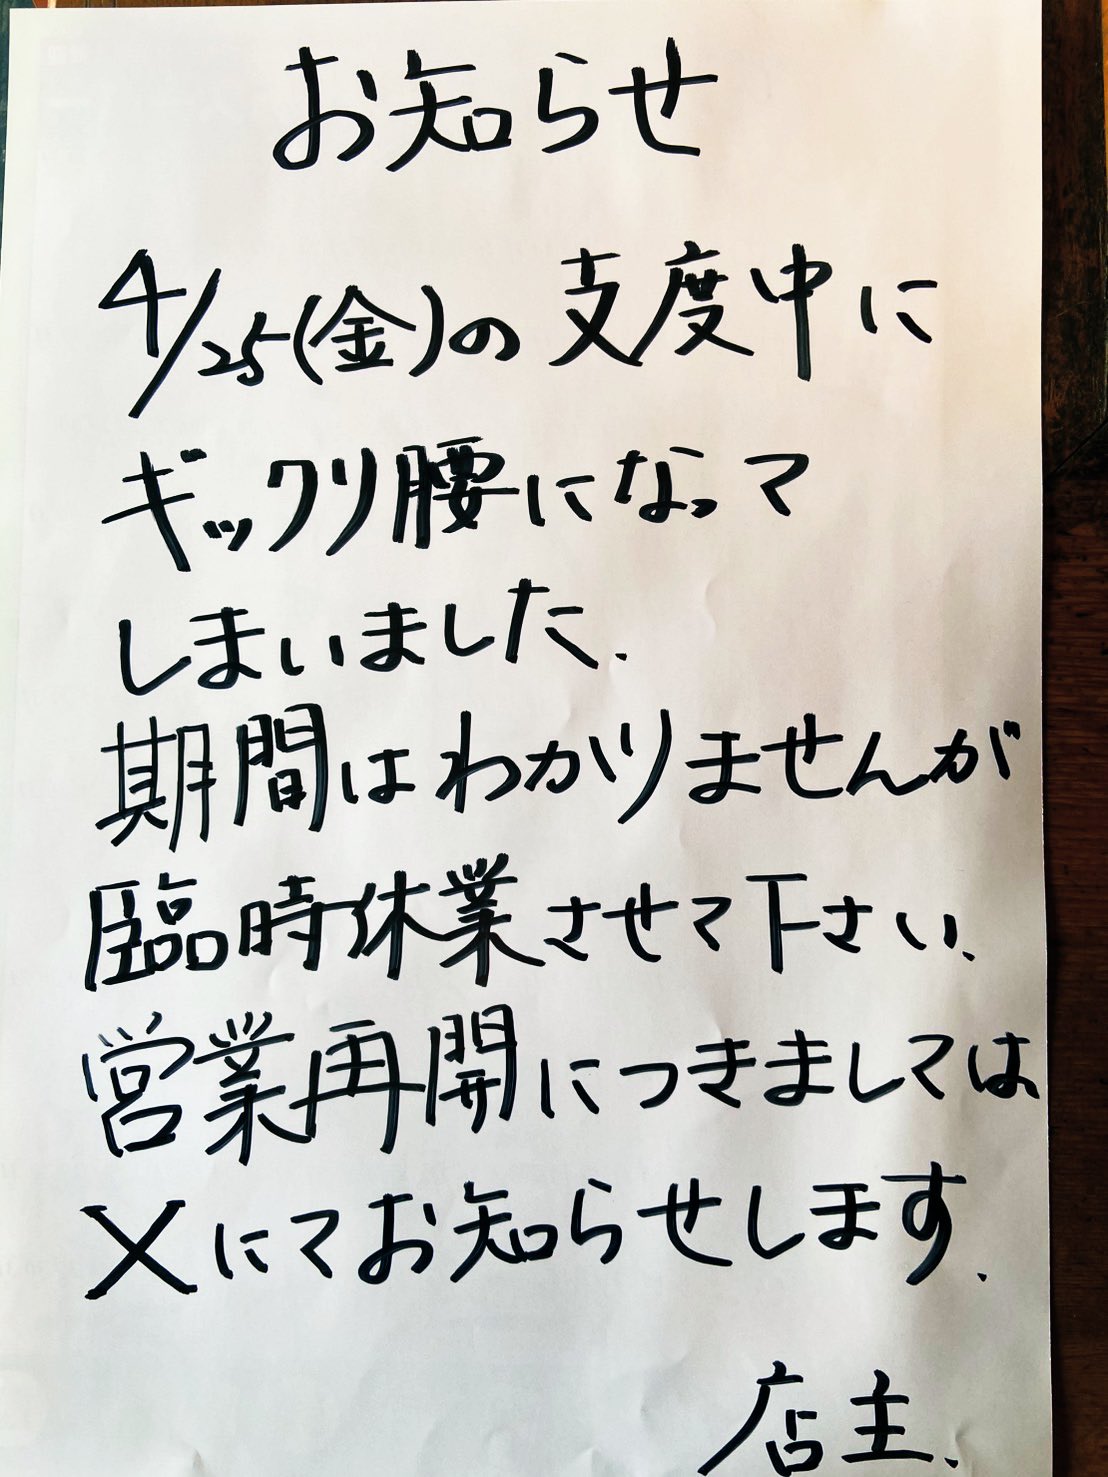 お知らせ
4/25(金)の支度中に
ギックリ腰になって
しまいました.
期間はわかりませんが
臨時休業させて下さい.
営業再開につきましては
Xにてお知らせします.
店主.